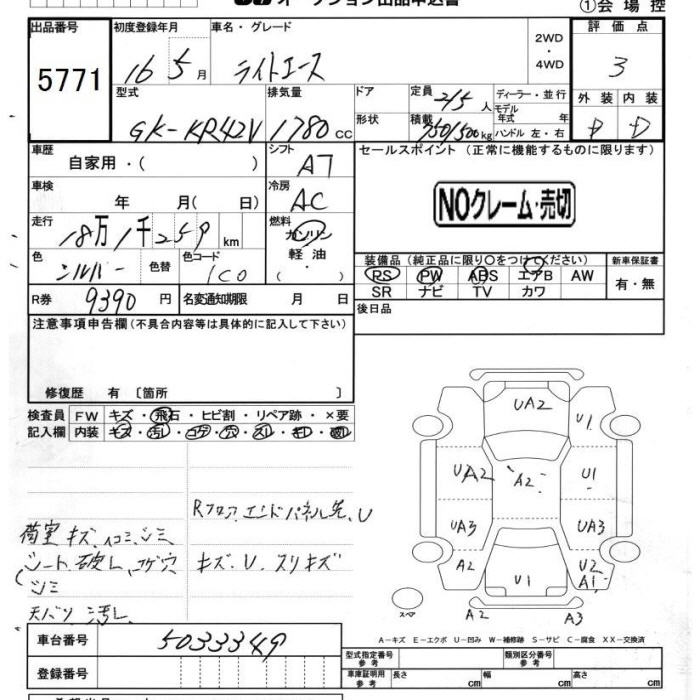 オークション出品申込書
①会場控
出品番号 初度登録年月 車名・グレード 2WD 評価点
5771 16 5月 ライトエース ・4WD 3
型式 排気量 ドア 定員 2/5人 ディーラー・並行 外装 内装
GK-KR42V 1780cc 形状 積載 750/500kg モデル年式 年 ハンドル 左・右 D D
車歴 自家用・( ) シフト AT セールスポイント (正常に機能するものに限ります)
車検 年 月( 日) 冷房 AC NOクレーム・売切
走行 18万1千259km 燃料 ガソリン
軽油
・( )
色 シルバー 色替 色コード 1C0
装備品 (純正品に限り○をつけてください) 新車保証書
RS PW ABS エアB AW 有・無
SR ナビ TV カワ
R券 9390円 名変通知期限 月 日 後日品
注意事項申告欄 (不具合内容等は具体的に記入して下さい)
修復歴 有 〔箇所 〕
検査員 FW キズ・飛石・ヒビ割・リペア跡・×要
記入欄 内装 キズ・汚レ・コゲ・穴・スレ・
UA2
U1
UA2 A2 U1
UA3 UA3
A2 U1 U2
A1
A2 A3
スペア
Rフロア、エンドパネル先、U
荷室 キズ、凹ミ、シミ
シート破レ、コゲ穴 キズ、U、スリキズ
シミ
天バリ 汚レ
A-キズ E-エクボ U-凹み W-補修跡 S-サビ C-腐食 XX-交換済
車台番号 5033349
型式指定番号 参考 類別区分番号 参考
登録番号 車庫証明用 参考 長さ cm 幅 cm 高さ cm